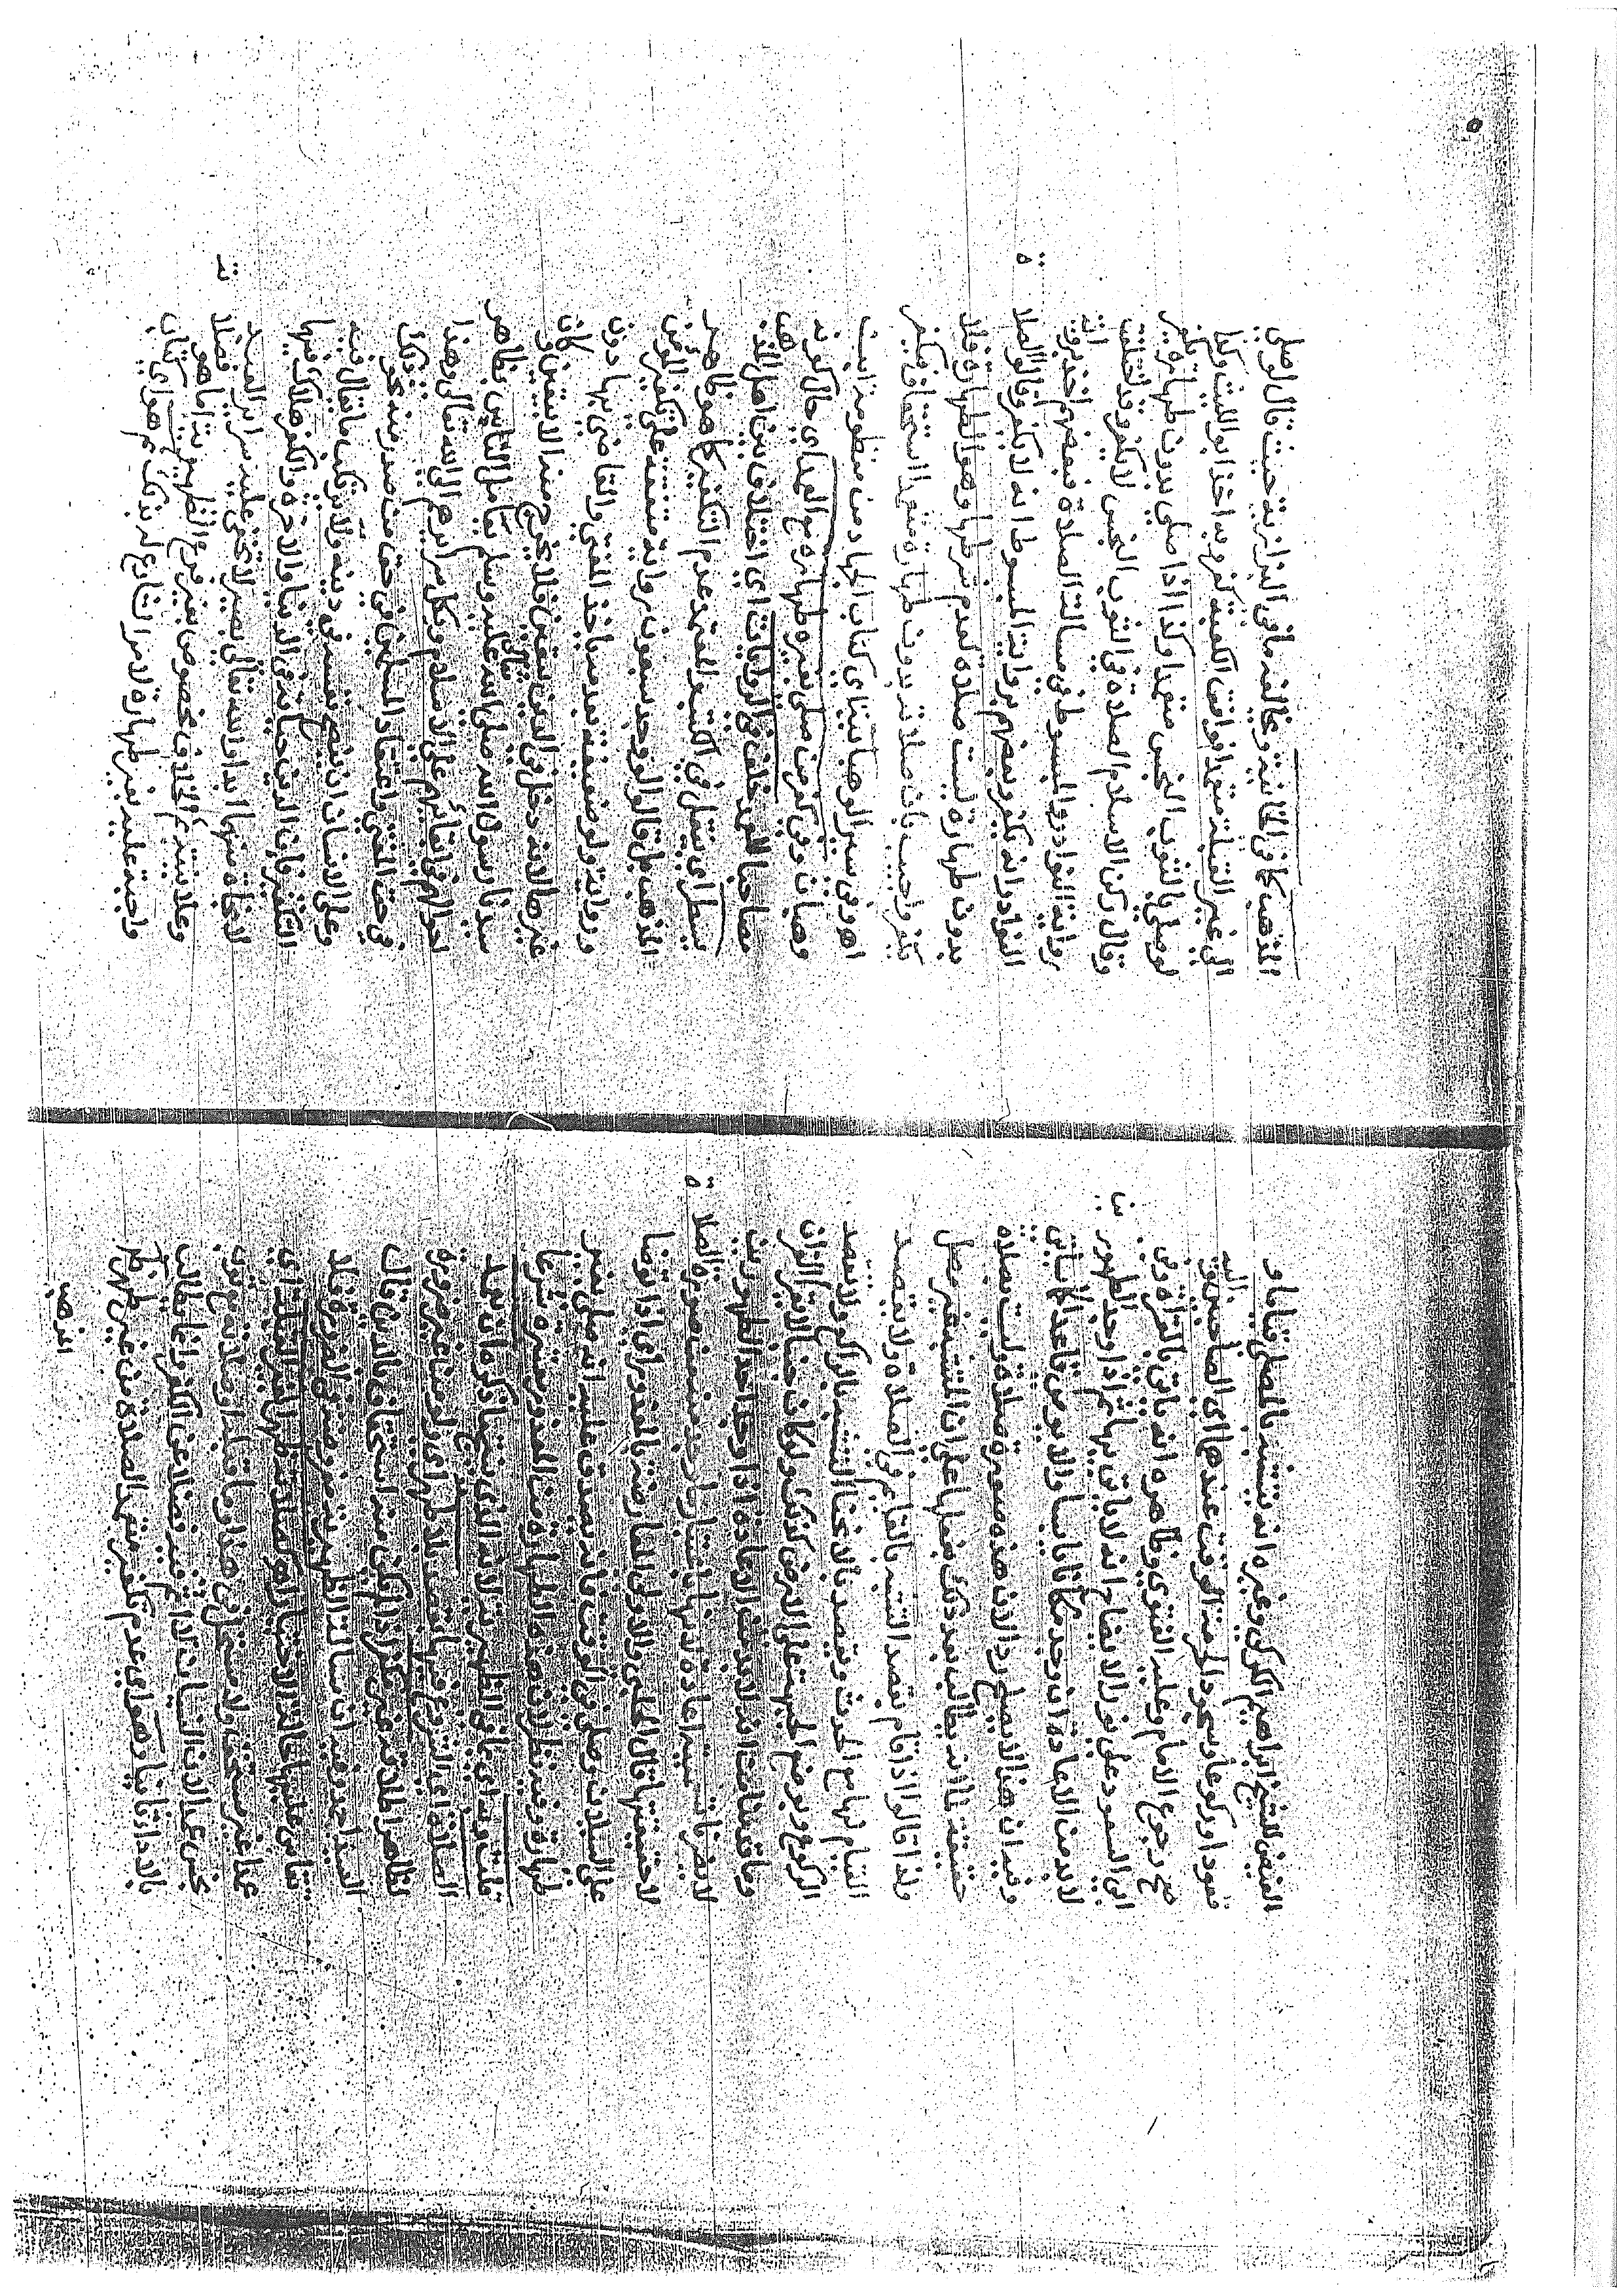 الفيض للشيخ ابراهيم الكركي وغيره انه يتشبه بالمصلي قياما و
قعودا وركوعا وسجودا لحرمة الوقت عندهما اي الصاحبين واليه
صح رجوع الامام وعليه الفتوى وظاهره انه ياتي بالقراءة وفي
ابي السعود على نور الايضاح انه لا ياتي بها ثم اذا وجد الطهورين
لا بد من الاعادة ان وجد مكانا يابسا والا يومي قاعدا كما ياتي
وفيه ان هذا لا يصلح ردا لان هذه صورة صلاة وليست بصلاة
حقيقة فانه يطالب بعد ذلك بفعلها على ان المتشبه غير مصل
ولذا قالوا اذا قام بقصد التشبه في الصلاة ولا يقصد
القيام لها مع الحدث ويقصد بالانحناء التشبه بالراكع ولا يقصد
الركوع وبوضع الجبهة على الارض كذلك ولو كان جنبا لا يقرا القران
وما قدمناه من انه لا بد من الاعادة اذا وجد احد الطهورين
لا يضر فانه سميت اعادة لانها باعتبار ما صدر منه من صورة الصلاة
لا حقيقتها قال الحلبي والاولى المعارضة بالمعذور اي اذا توضا
على السيلان وصلى في الوقت فانه يصدق عليه انه صلى بغير
طهارة وفيه نظر لان هذه الطهارة من المعذور معتبرة شرعا
قلت وبه اي بما في الظهيرية لانه الذي فيها ذكره ان تعمد
الصلاة اي الشروع فيها بقصده بلا طهر اي لو من غير ضرورة
غير مكفر اذا لم يكن منه استخفاف بالدين قال
السيد احمد وفيه ان مسالة الظهيرية مفروضة في الضرورة فلا
تقاس عليها حالة الاختيار اه كصلاته لغير القبلة اي
عمدا غير مستحل ولا مستخف هذا وما قبله او صلاته مع ثوب
نجس عمدا لان النسيان داع فيه فضلا عن الكفر وانما طالب
بالاداء ثانيا وهو اي عدم تكفير متعمد الصلاة من غير طهر ظاهر
المذهب
المذهب كما في الخانية ويخالفه ما في البزازية حيث قال لو صلى
الى غير القبلة متعمدا فوافق الكعبة كفر وبه اخذ ابو الليث وكذا
لو صلى بالثوب النجس متعمدا وكذا اذا صلى بدون طهارة يكفر
وقال ركن الاسلام الصلاة في الثوب النجس لا يكفر وقد اختلفت
رواية النوادر والمبسوط في مسالة الصلاة فبعضهم اخذ برواية
النوادر انه يكفر وبعضهم برواية المبسوط انه لا يكفر قالوا الصلاة
بدون طهارة ليست صلاة لعدم شرطها وهو الطهارة فلا
يكفر واجيب بان صلاته بدون طهارة متعمدا استخفاف فيكفر
اهـ وفي سير الوهبانية اي كتاب الجهاد من منظومة ابن
وهبان وفي كفر من صلى بغير طهارة مع العمد اي حال كونه
مصاحبا للعمد خلف في الروايات اي اختلاف بين اهل المذهب
يسطر اي ينقل في الكتب والمعتمد عدم التكفير كما هو ظاهر
المذهب بل قالوا لو وجد سبعون رواية متفقة على تكفير المؤمن
ورواية ولو ضعيفة بعدمه ياخذ المفتي والقاضي بها دون
غيرها لانه دخل في الدين بيقين فلا يخرج منه الا بيقين وكان
سيدنا رسول الله صلى الله تعالى عليه وسلم يعامل الناس بظاهر
احوالهم في بقائهم على الاسلام ويكل سرايرهم الى الله تعالى وهذا
في حق المفتي واعتقاد السامعين في حق من صدر منه نحو ذلك
وعلى الانسان ان ينصح نفسه في دينه ولا يرتكب ما يقال فيه
التكفير فان الدين حياته في الدنيا والاخرة والكفر هلاك فيها
لا نجاة منها ابدا والله تعالى بصير لا تخفى عليه سراير العبيد
وعلانيته ثم الخلاف مخصوص بغير فرع الظهيرية اما هو فصلاته
واجبة عليه بغير طهارة لامر الشارع له بذلك ثم هو اي كتاب